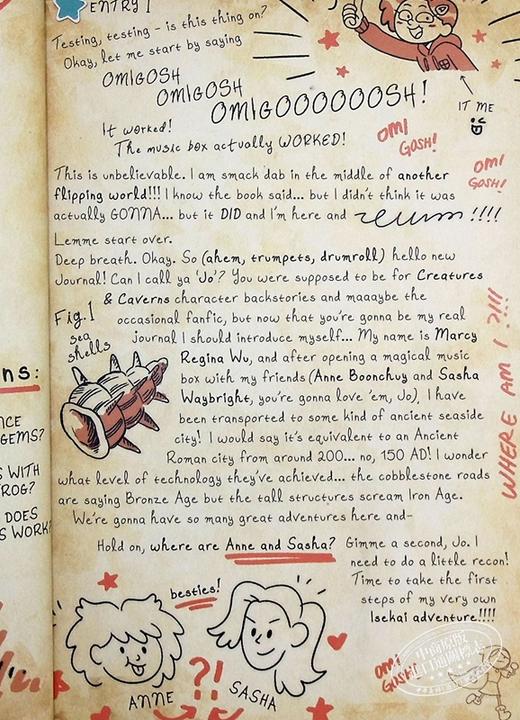 ENTRY 1
Testing, testing - is this thing on?
Okay, let me start by saying
OMIGOSH
OMIGOSH
OMIGOOOOOOSH!
IT ME
It worked!
The music box actually WORKED!
OMI
GOSH!
OMI
GOSH!
This is unbelievable. I am smack dab in the middle of another
flipping world!!! I know the book said... but I didn't think it was
actually GONNA... but it DID and I'm here and
!!!!
Lemme start over.
Deep breath. Okay. So (ahem, trumpets, drumroll) hello new
Journal! Can I call ya 'Jo'? You were supposed to be for Creatures
& Caverns character backstories and maaaybe the
occasional fanfic, but now that you're gonna be my real
journal I should introduce myself... My name is Marcy
Regina Wu, and after opening a magical music
box with my friends (Anne Boonchuy and Sasha
Waybright, you're gonna love 'em, Jo), I have
been transported to some kind of ancient seaside
city! I would say it's equivalent to an Ancient
Roman city from around 200... no, 150 AD! I wonder
what level of technology they've achieved... the cobblestone roads
are saying Bronze Age but the tall structures scream Iron Age.
We're gonna have so many great adventures here and-
Fig.1
sea
shells
WHERE AM I ?!!!
Hold on, where are Anne and Sasha? Gimme a second, Jo. I
need to do a little recon!
Time to take the first
steps of my very own
Isekai adventure!!!!
besties!
?!
ANNE
SASHA
OMI
GOSH!
NS:
NCE
GEMS?
S WITH
ROG?
DOES
S WORK?